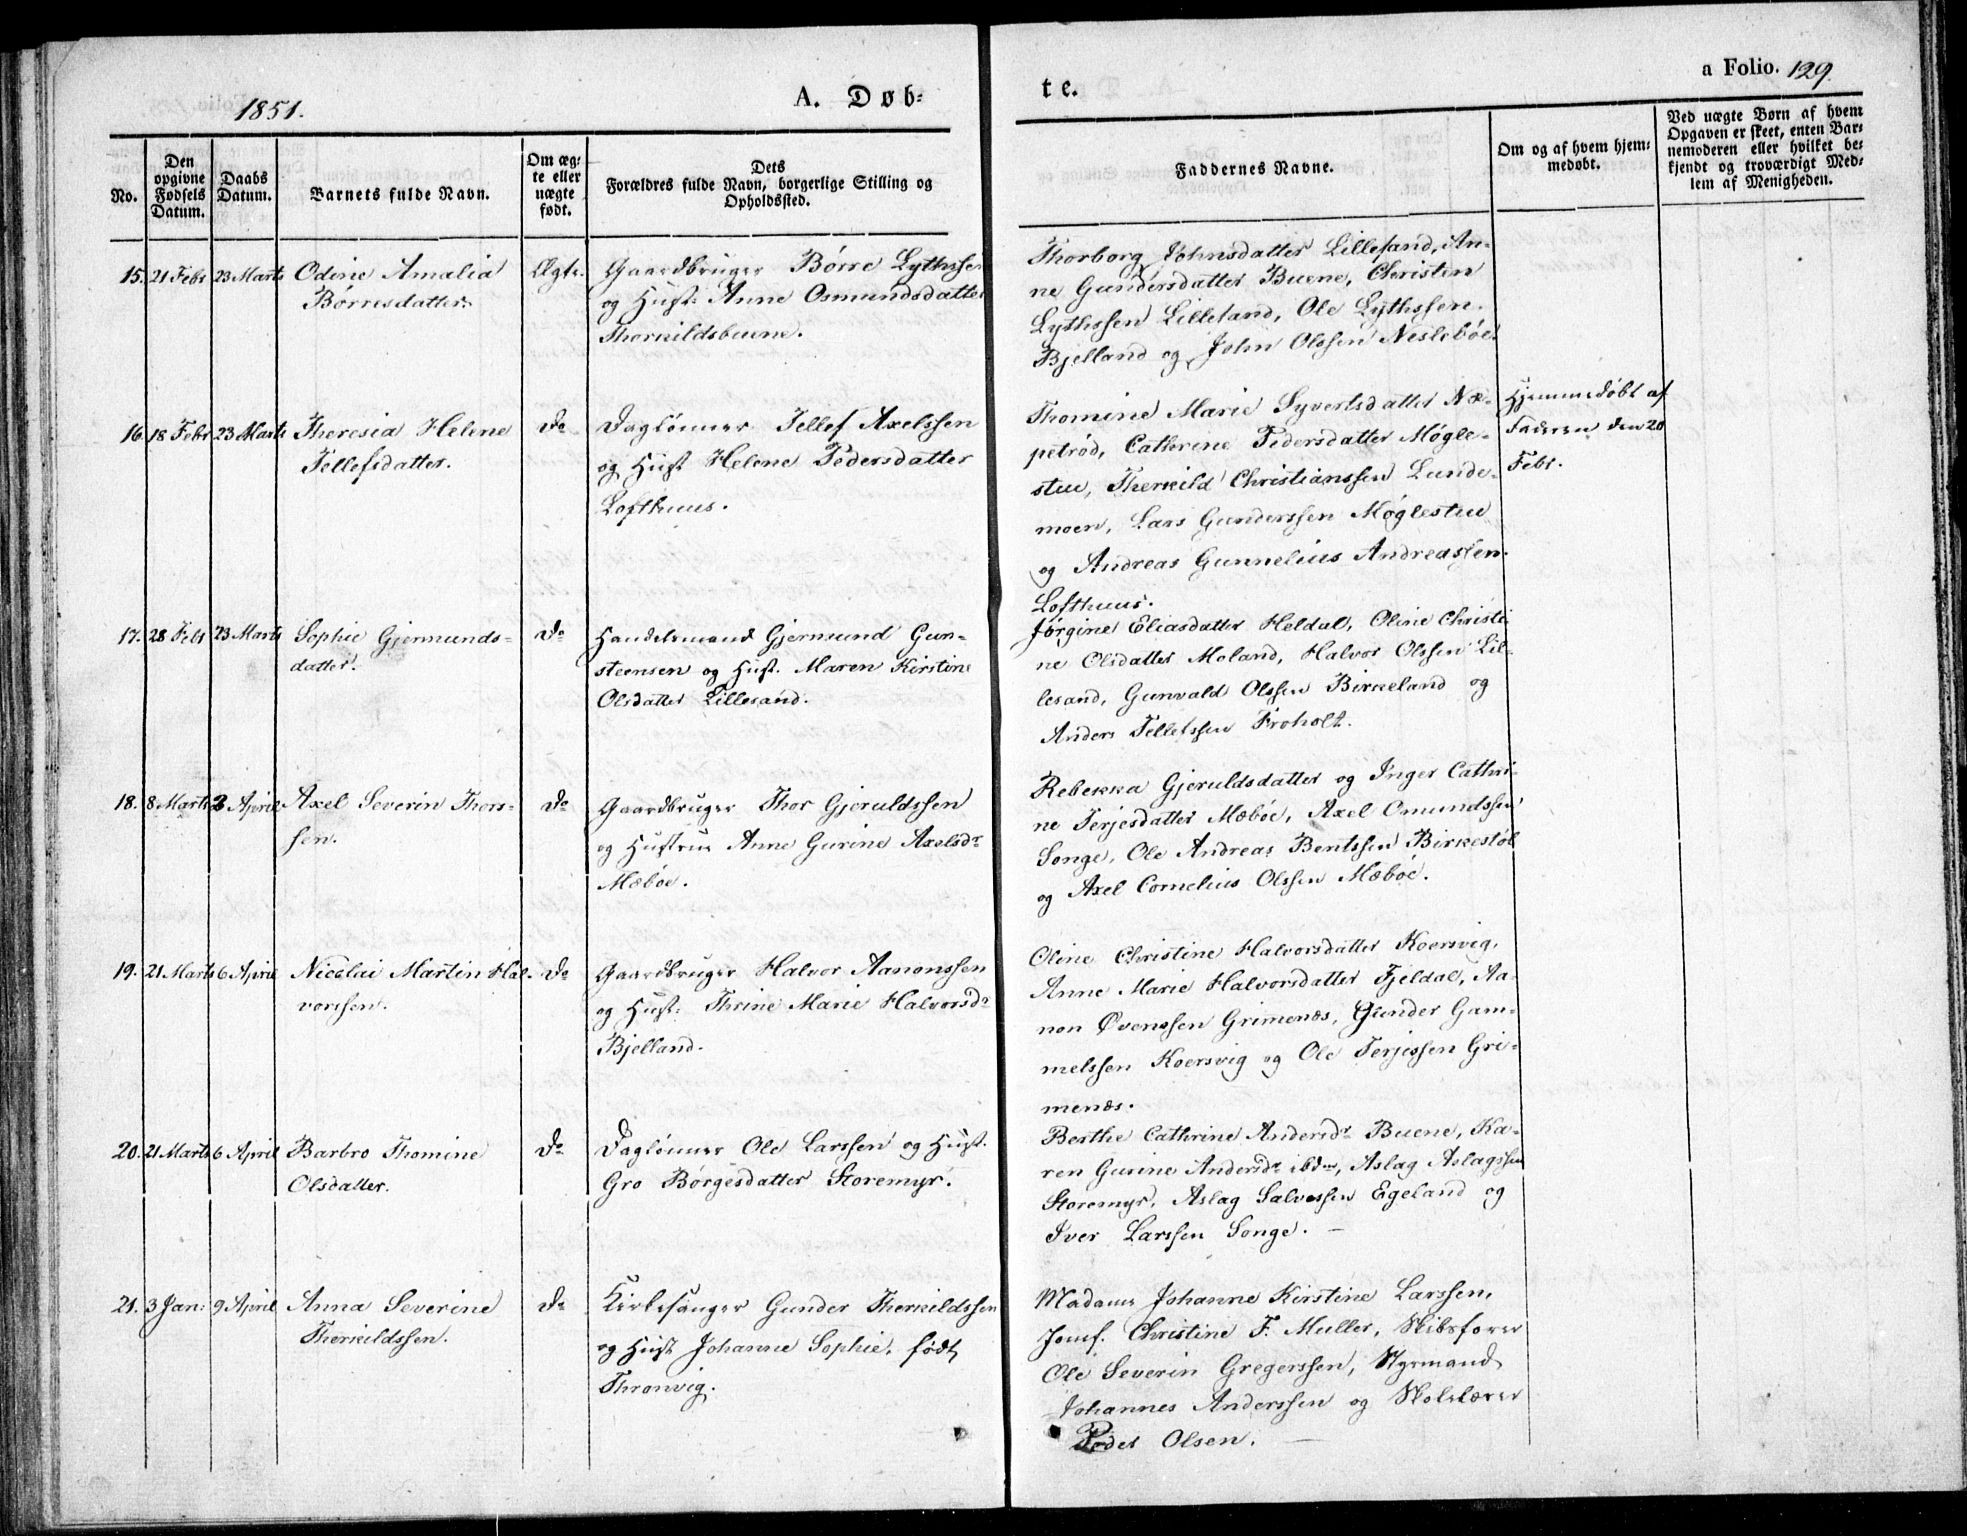 1851.
A. Døb-
te.
a Folio. 129.
No.
Den opgivne Fødsels Datum.
Daabs Datum.
Barnets fulde Navn.
Om ægte eller uægte født.
Dets Forældres fulde Navn, borgerlige Stilling og Opholdssted.
Faddernes Navne.
Om og af hvem hjemmedøbt.
Ved uægte Børn af hvem Opgaven er skeet, enten Barnemoderen eller hvilket bekjendt og troværdigt Medlem af Menigheden.
15. 21 Febr 23 Marts Odine Amalia
Børresdatter.
Ægte.
Gaardbruger Børre Lythssen
og Hust: Anne Osmundsdatter
Thorkildsbuene.
Thorborg Johnsdatter Lillesand, An-
ne Gundersdatter Buene, Christen
Lythssen Lillesand, Ole Lythssen
Bjelland og John Olssen Neslebøe.
16. 18 Febr 23 Marts Theresia Helene
Tellefsdatter.
Do
Daglønner Tellef Axelssen
og Hust Helene Pedersdatter
Lofthuus.
Thomine Marie Syvertsdatter Næ-
petrød, Cathrine Pedersdatter Møgle-
stue, Therkild Christianssen Lunde-
moen, Lars Gunderssen Møglestue
og Andreas Gunnelius Andreassen
Lofthuus.
Hjemmedøbt af
Faderen den 20
Febr.
17. 28 Febr 23 Marts Sophie Gjermunds-
datter.
Do
Handelsmand Gjermund Gun-
steensen og Hust. Maren Kirstine
Olsdatter Lillesand.
Jørgine Eliasdatter Heldal, Oline Christi-
ne Olsdatter Moland, Halvor Olssen Lil-
lesand, Gunvald Olssen Birkeland og
Anders Tellefssen Froholt.
18. 8 Marts 3 April Axel Severin Thors-
sen.
Do
Gaardbruger Thor Gjeruldssen
og Hustrue Anne Gurine Axelsdr
Mæbøe.
Rebekka Gjeruldsdatter og Inger Cathri-
ne Terjesdatter Mæbøe, Axel Omundssen
Songe, Ole Andreas Bentssen Birkestøl
og Axel Cornelius Olssen Mæbøe.
19. 21 Marts 6 April Nicolai Martin Hal-
vorssen.
Do
Gaardbruger Halvor Aanonssen
og Hust: Thrine Marie Halvorsdr
Bjelland.
Oline Christine Halvorsdatter Koersvig,
Anne Marie Halvorsdatter Fjeldal, Aa-
non Øvenssen Grimenæs, Gunder Gam-
melssen Koersvig og Ole Terjessen Gri-
menæs.
20. 21 Marts 6 April Barbro Thomine
Olsdatter.
Do
Daglønner Ole Larssen og Hust.
Gro Børgesdatter Storemyr.
Berthe Cathrine Andersdr Buene, Ka-
ren Gurine Andersdr ibdm, Aslag Aslagssen
Storemyr, Aslag Salvessen Egeland og
Iver Larssen Songe. —
21. 3 Jan: 9 April Anna Severine
Therkildssen.
Do
Kirkesanger Gunder Therkildssen
og Hust Johanne Sophie, født
Thronvig.
Madame Johanne Kirstine Larssen,
Jomf. Christine F. Muller, Skibsfører
Ole Severin Gregerssen, Styrmand
Johannes Anderssen og Skolelærer
Peder Olsen. —